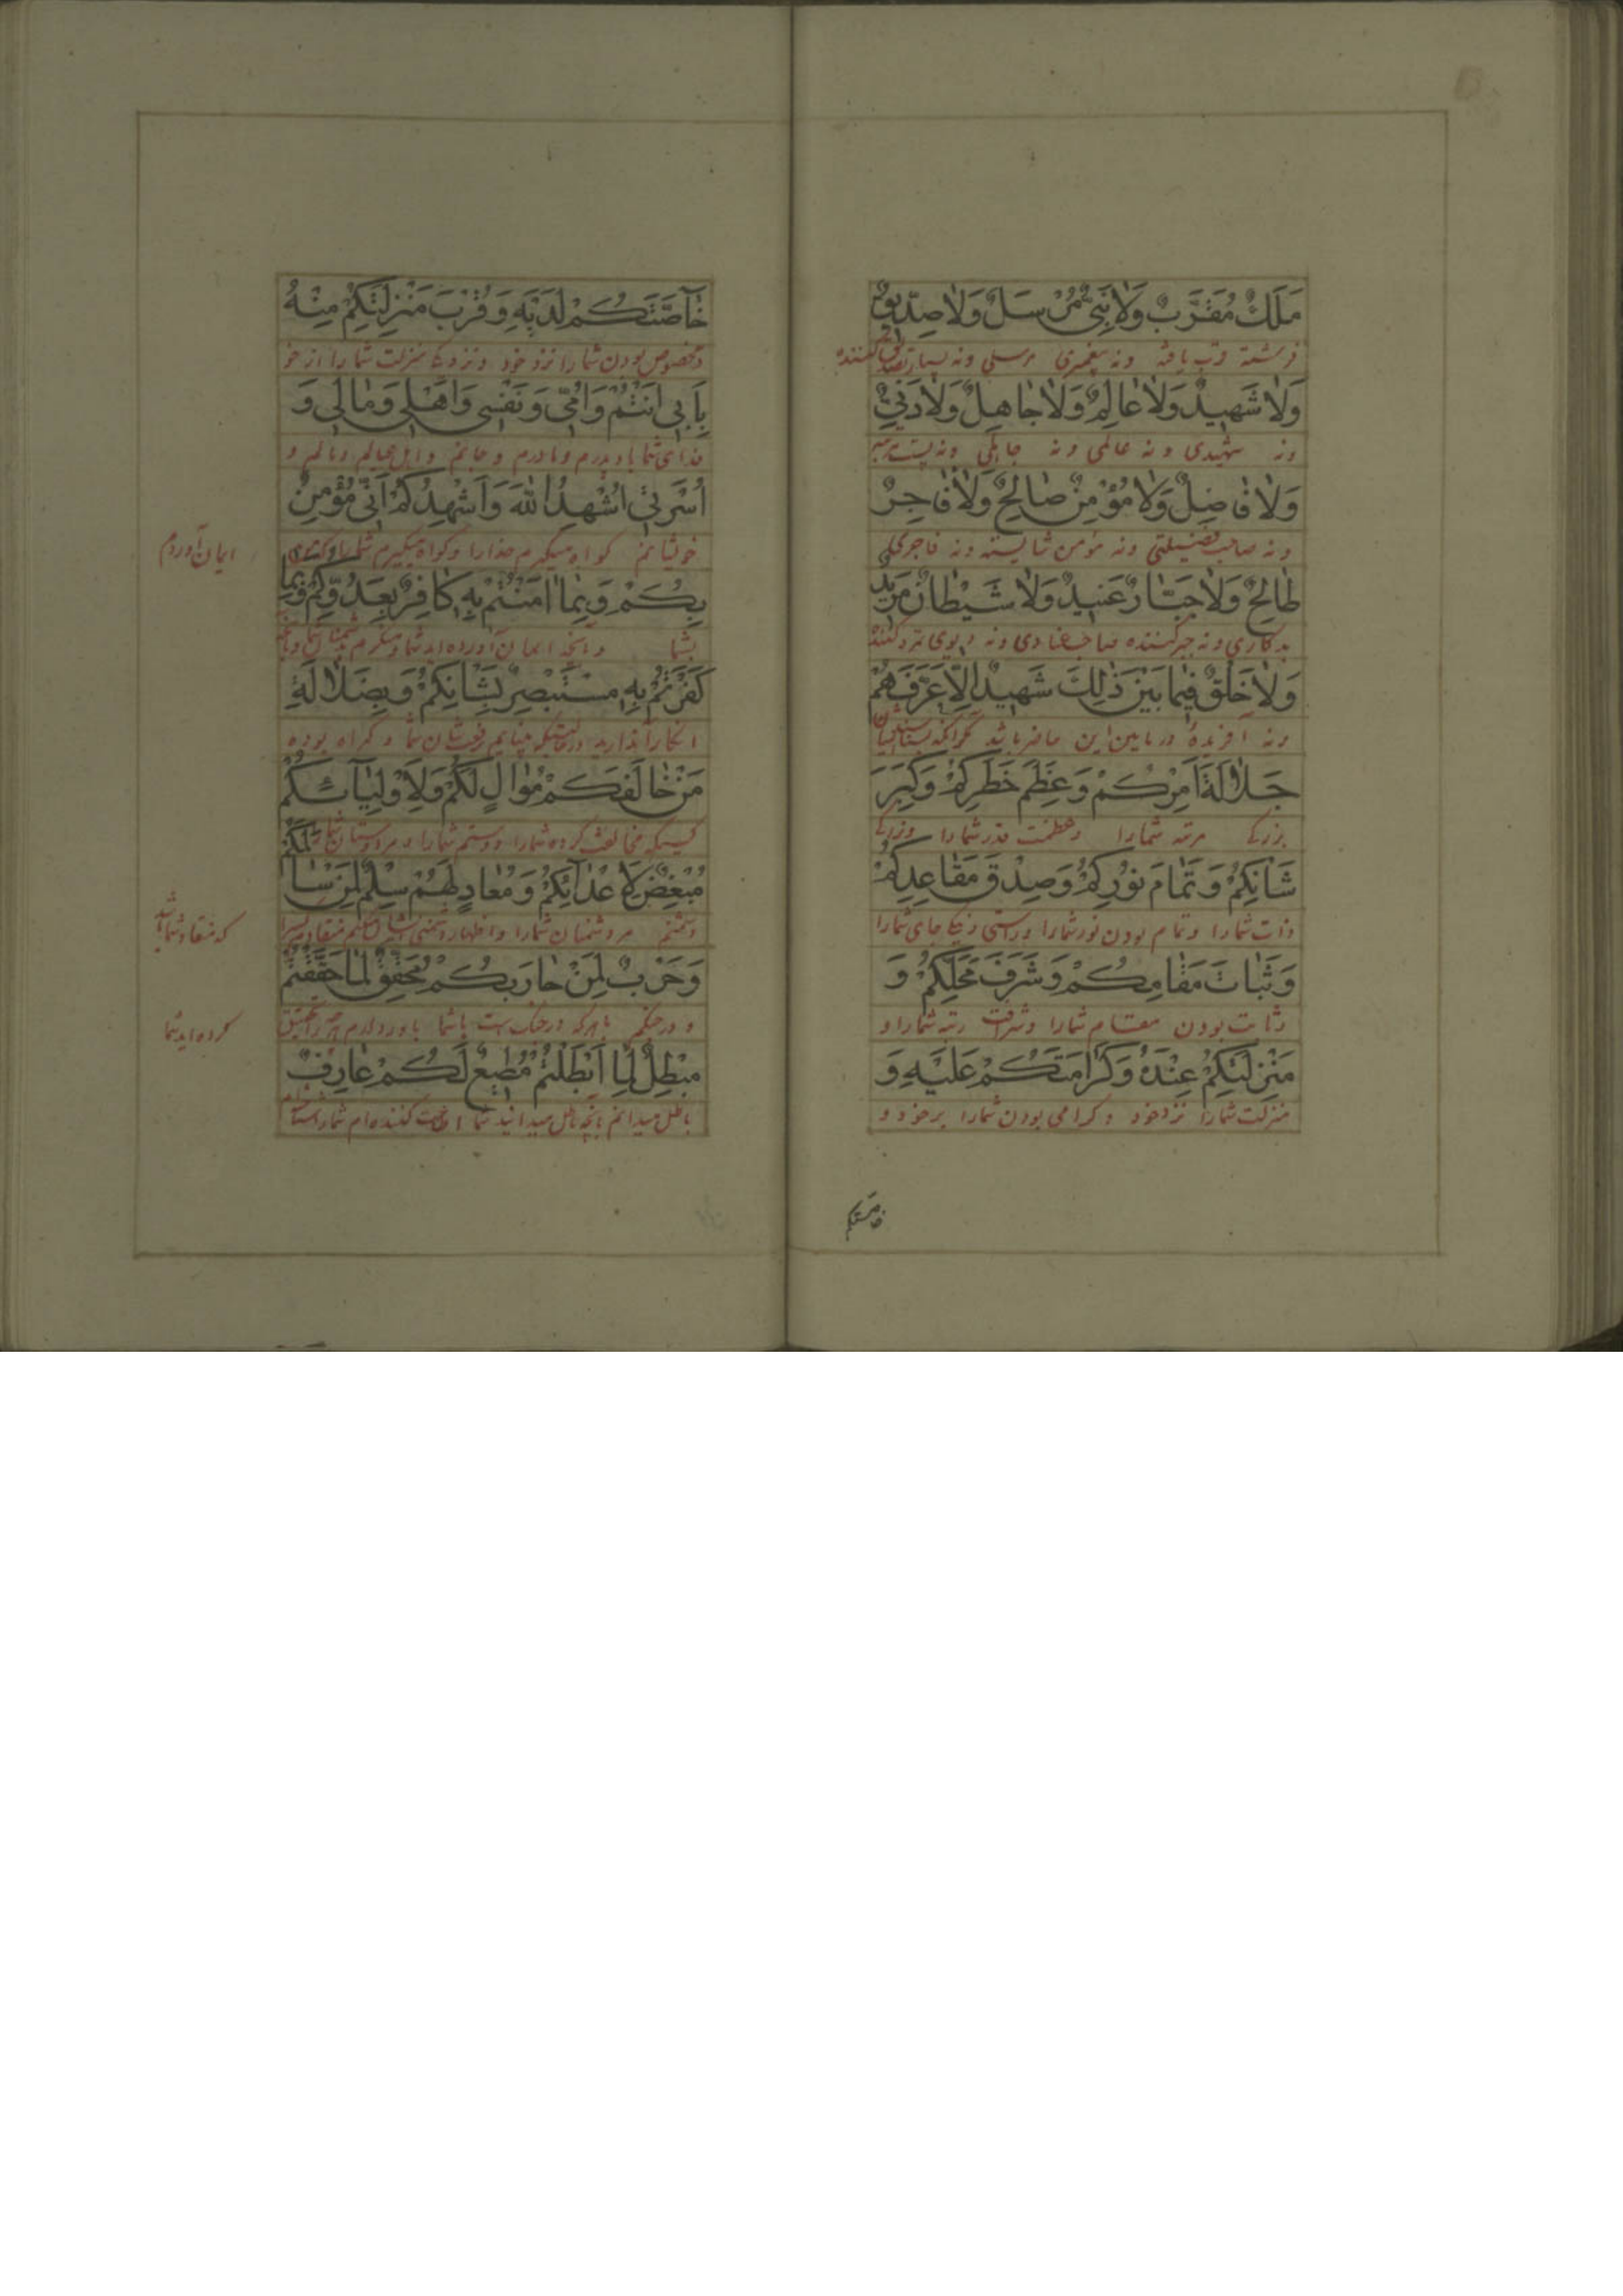 مَلَكٌ مُقَرَّبٌ وَلَا نَبِىٌّ مُرْسَلٌ وَلَا صِدّيقٌ
فرشته قرب یافته ونه پیغمبری مرسلی ونه بسیار تصدیق کننده
وَلَا شَهيدٌ وَلَا عَالِمٌ وَلَا جَاهِلٌ وَلَا دَنِىٌّ
ونه شهیدی ونه عالمی ونه جاهلی ونه پست مرتبه
وَلَا فَاضِلٌ وَلَا مُؤْمِنٌ صَالِحٌ وَلَا فَاجِرٌ
ونه صاحب فضیلتی ونه مؤمن شایسته ونه فاجری
طَالِحٌ وَلَا جَبَّارٌ عَنيدٌ وَلَا شَيْطَانٌ مَريدٌ
بدکاری ونه جبرکننده صاحب عنادی ونه دیوی تمرد کننده
وَلَا خَلْقٌ فيمَا بَيْنَ ذٰلِكَ شَهيدٌ اِلَّا عَرَّفَهُمْ
ونه آفریده در مابین این حاضر باشد مگر آنکه
جَلَالَةَ اَمْرِكُمْ وَعِظَمَ خَطَرِكُمْ وَكِبَرَ
بزرگی مرتبه شمارا وعظمت قدر شمارا وبزرگی
شَانِكُمْ وَتَمَامَ نُورِكُمْ وَصِدْقَ مَقَاعِدِكُمْ
ذات شمارا وتمام بودن نور شمارا وراستی جای شمارا
وَثَبَاتَ مَقَامِكُمْ وَشَرَفَ مَحَلِّكُمْ وَ
وثابت بودن مقام شمارا وشرافت رتبه شمارا و
مَنْزِلَتِكُمْ عِنْدَهُ وَكَرَامَتَكُمْ عَلَيْهِ وَ
منزلت شمارا نزد خود وگرامی بودن شمارا بر خود و
خاصتکم
خَاصَّتَكُمْ لَدَيْهِ وَقُرْبَ مَنْزِلَتِكُمْ مِنْهُ
ومخصوص بودن شمارا نزد خود ونزدیکی منزلت شمارا از خود
بِاَبى اَنْتُمْ وَاُمّى وَنَفْسى وَاَهْلى وَمَالى وَ
فدای شما باد پدرم ومادرم وجانم واهل وعیالم ومالم و
اُسْرَتى اُشْهِدُ اللّٰهَ وَاُشْهِدُكُمْ اَنّى مُؤْمِنٌ
خویشانم گواه میگیرم خدارا وگواه میگیرم شمارا که من
ایمان آوردم
بِكُمْ وَبِمَا اٰمَنْتُمْ بِهِ كَافِرٌ بِعَدُوِّكُمْ وَبِمَا
بشما وبآنچه ایمان آورده اید شما ومنکرم بدشمنان شما وبآنچه
كَفَرْتُمْ بِهِ مُسْتَبْصِرٌ بِشَانِكُمْ وَبِضَلَالَةِ
مَنْ خَالَفَكُمْ مُوَالٍ لَكُمْ وَلِاَوْلِيَائِكُمْ
کسیکه مخالفت کرده شمارا دوستم شمارا ومر دوستان شمارا
مُبْغِضٌ لِاَعْدَائِكُمْ وَمُعَادٍ لَهُمْ سِلْمٌ لِمَنْ سَالَمَكُمْ
دشمنم مر دشمنان شمارا
که منقاد شما باشد
وَحَرْبٌ لِمَنْ حَارَبَكُمْ مُحَقِّقٌ لِمَا حَقَّقْتُمْ
ودر جنگم باهرکه در جنگ است باشما
کرده اید شما
مُبْطِلٌ لِمَا اَبْطَلْتُمْ مُطيعٌ لَكُمْ عَارِفٌ
باطل میدانم آنچه باطل میدانید شما اطاعت کننده ام شمارا